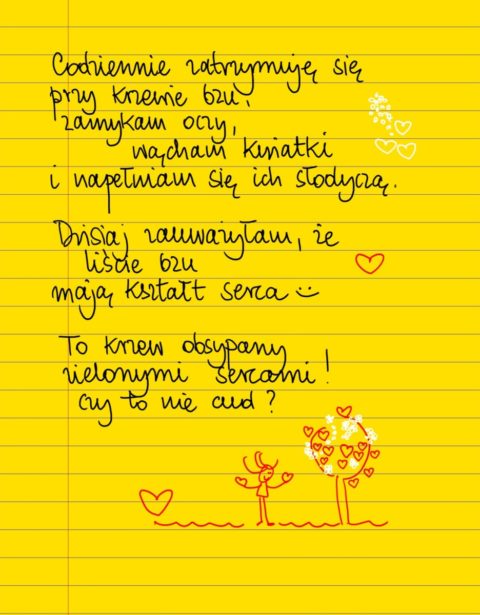 Codziennie zatrzymuję się
przy krzewie bzu,
zamykam oczy,
wącham kwiatki
i napełniam się ich słodyczą.
Dzisiaj zauważyłam, że
liście bzu
mają kształt serca :)
To krzew obsypany
zielonymi sercami!
czy to nie cud?